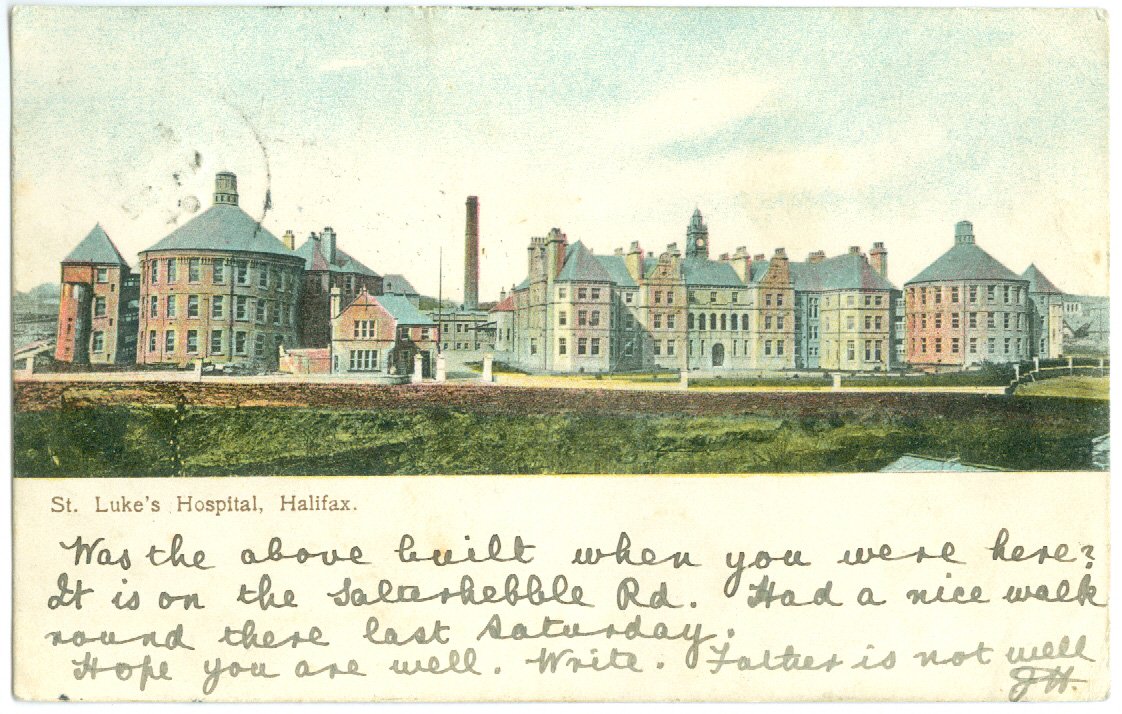 St. Luke's Hospital, Halifax.
Was the above built when you were here?
It is on the Salterhebble Rd. Had a nice walk
round there last Saturday.
Hope you are well. Write. Father is not well
JH.